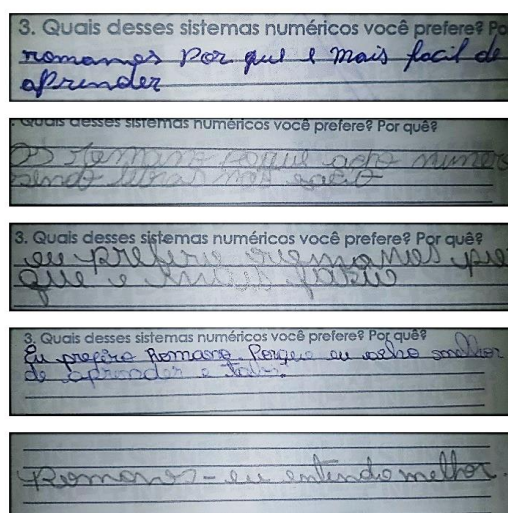 3. Quais desses sistemas numéricos você prefere? Po
romanos Por que e mais facil de
aprender
. Quais desses sistemas numéricos você prefere? Por quê?
Os Romano poque acho numero
sendo letras mas facio
3. Quais desses sistemas numéricos você prefere? Por quê?
eu prefiro romanos
que e mais facio
3. Quais desses sistemas numéricos você prefere? Por quê?
Eu prefiro Romano. Porque eu acho
de aprender e
Romanos - eu entendo melhor.